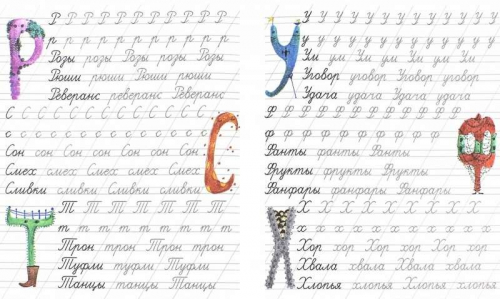 Р Р Р Р Р Р Р Р Р Р
р р р р р р р р р р
Розы розы Розы розы Розы
Рюши рюши Рюши рюши
Реверанс реверанс Реверанс
С С С С С С С С С С С
с с с с с с с с с с с
Сон сон Сон сон Сон сон Сон
Смех смех Смех смех Смех
Сливки сливки Сливки сливки
Т Т Т Т Т Т Т
т т т т т т т т т
Трон трон Трон трон
Туфли туфли Туфли
Танцы танцы Танцы
У У У У У У У У У У У У
у у у у у у у у у у у у
Ум ум Ум ум Ум ум Ум
Уговор уговор Уговор уговор
Удача удача Удача удача
Ф Ф Ф Ф Ф Ф Ф Ф Ф Ф
ф ф ф ф ф ф ф ф ф ф
Фанты фанты Фанты
Фрукты фрукты Фрукты
Фанфары фанфары Фанфары
Х Х Х Х Х Х Х Х Х Х
х х х х х х х х х х
Хор хор Хор хор Хор хор
Хвала хвала Хвала хвала
Хлопья хлопья Хлопья хлопья